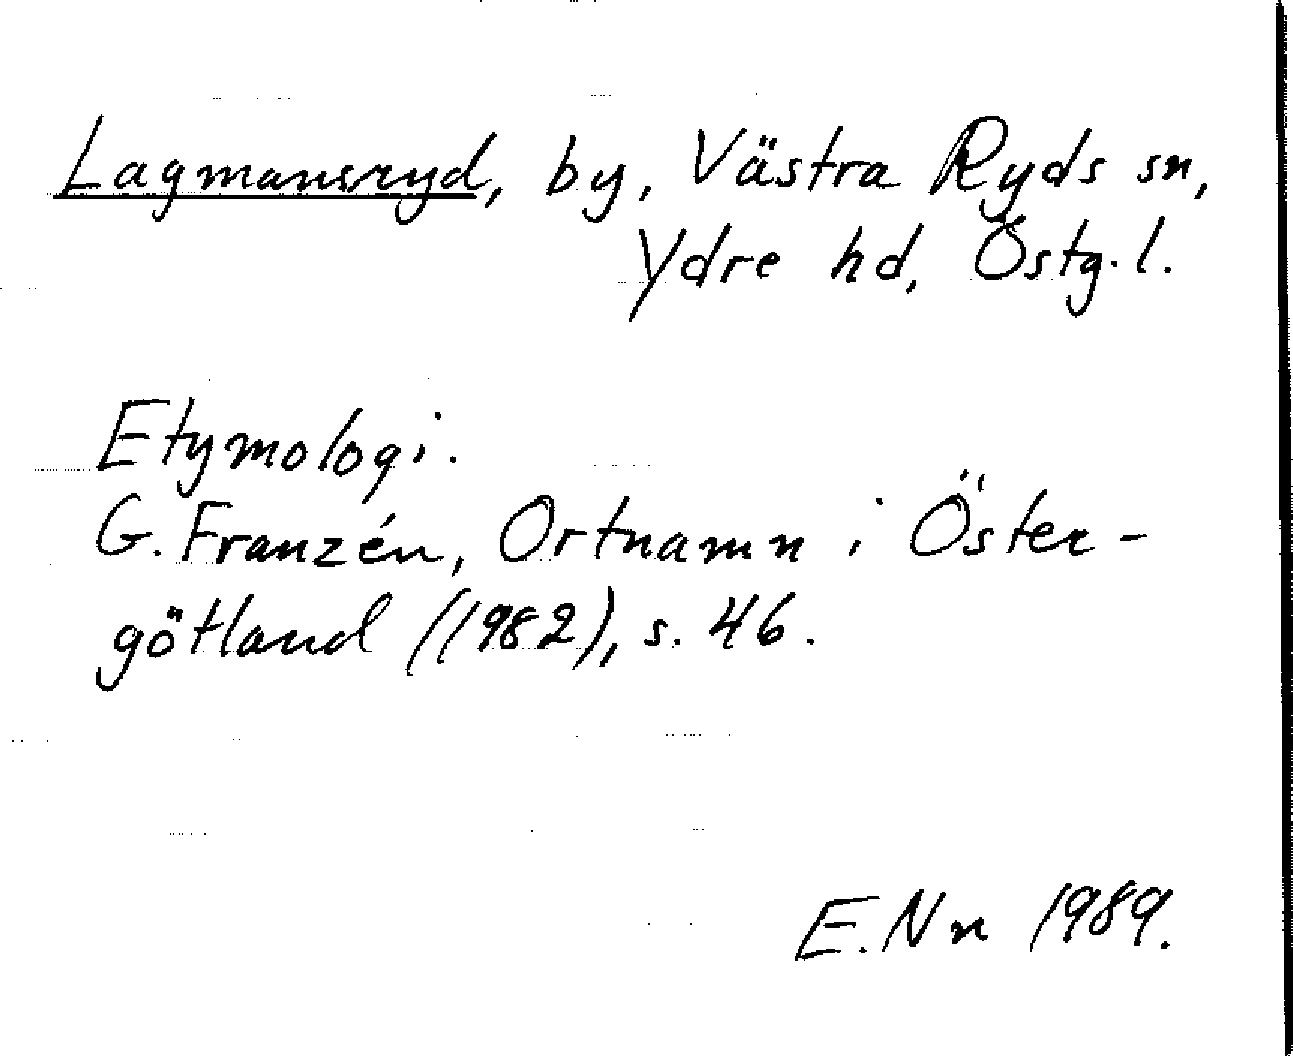 Lagmansryd, by, Västra Ryds sn,
Ydre hd, Östg.l.
Etymologi.
G. Franzén, Ortnamn i Öster-
götland (1982), s. 46.
E. Nn 1989.